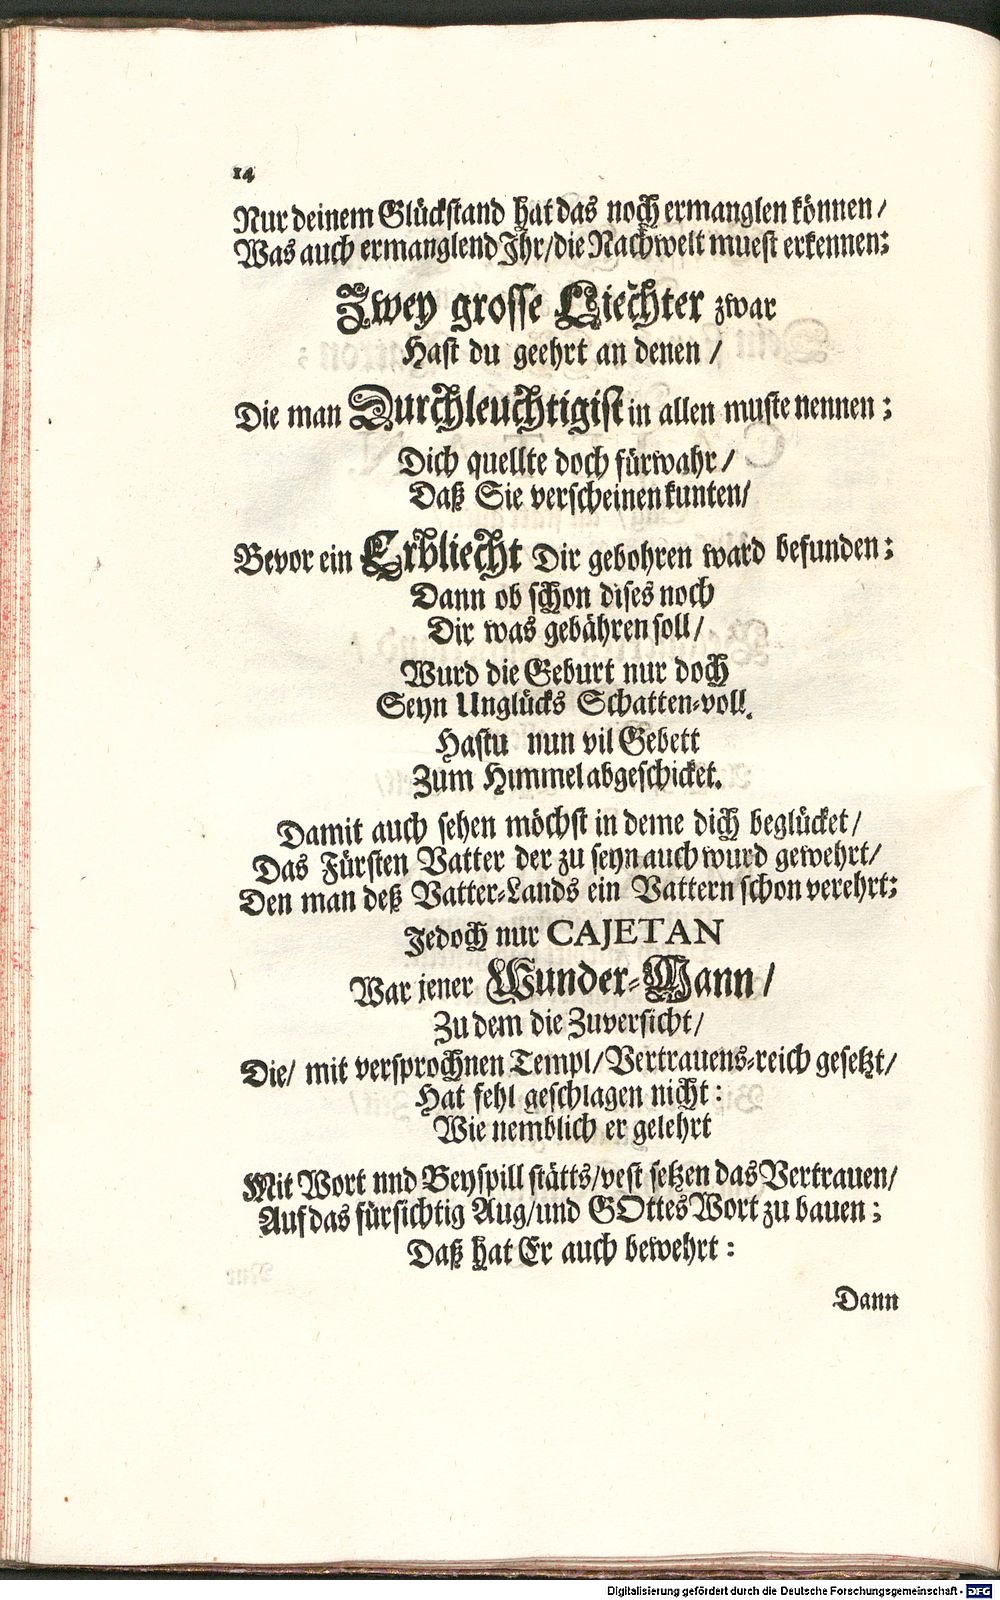 14
Nur deinem Glückstand hat das noch ermanglen können /
Was auch ermanglend Ihr / die Nachwelt muest erkennen:
Zwey grosse Liechter zwar
Hast du geehrt an denen /
Die man Durchleuchtigist in allen muste nennen ;
Dich quellte doch fürwahr /
Daß Sie verscheinen kunten /
Bevor ein Erbliecht Dir gebohren ward befunden ;
Dann ob schon dises noch
Dir was gebähren soll /
Wurd die Geburt nur doch
Seyn Unglücks Schatten-voll.
Hastu nun vil Gebett
Zum Himmel abgeschicket.
Damit auch sehen möchst in deme dich beglücket /
Das Fürsten Vatter der zu seyn auch wurd gewehrt /
Den man deß Vatter-Lands ein Vattern schon verehrt;
Jedoch nur CAJETAN
War jener Wunder-Mann /
Zu dem die Zuversicht /
Die / mit versprochnen Templ / Vertrauens-reich gesetzt /
Hat fehl geschlagen nicht :
Wie nemblich er gelehrt
Mit Wort nnd Beyspill stätts / vest setzen das Vertrauen /
Auf das fürsichtig Aug / und GOttes Wort zu bauen ;
Daß hat Er auch bewehrt :
Dann
Digitalisierung gefördert durch die Deutsche Forschungsgemeinschaft - DFG